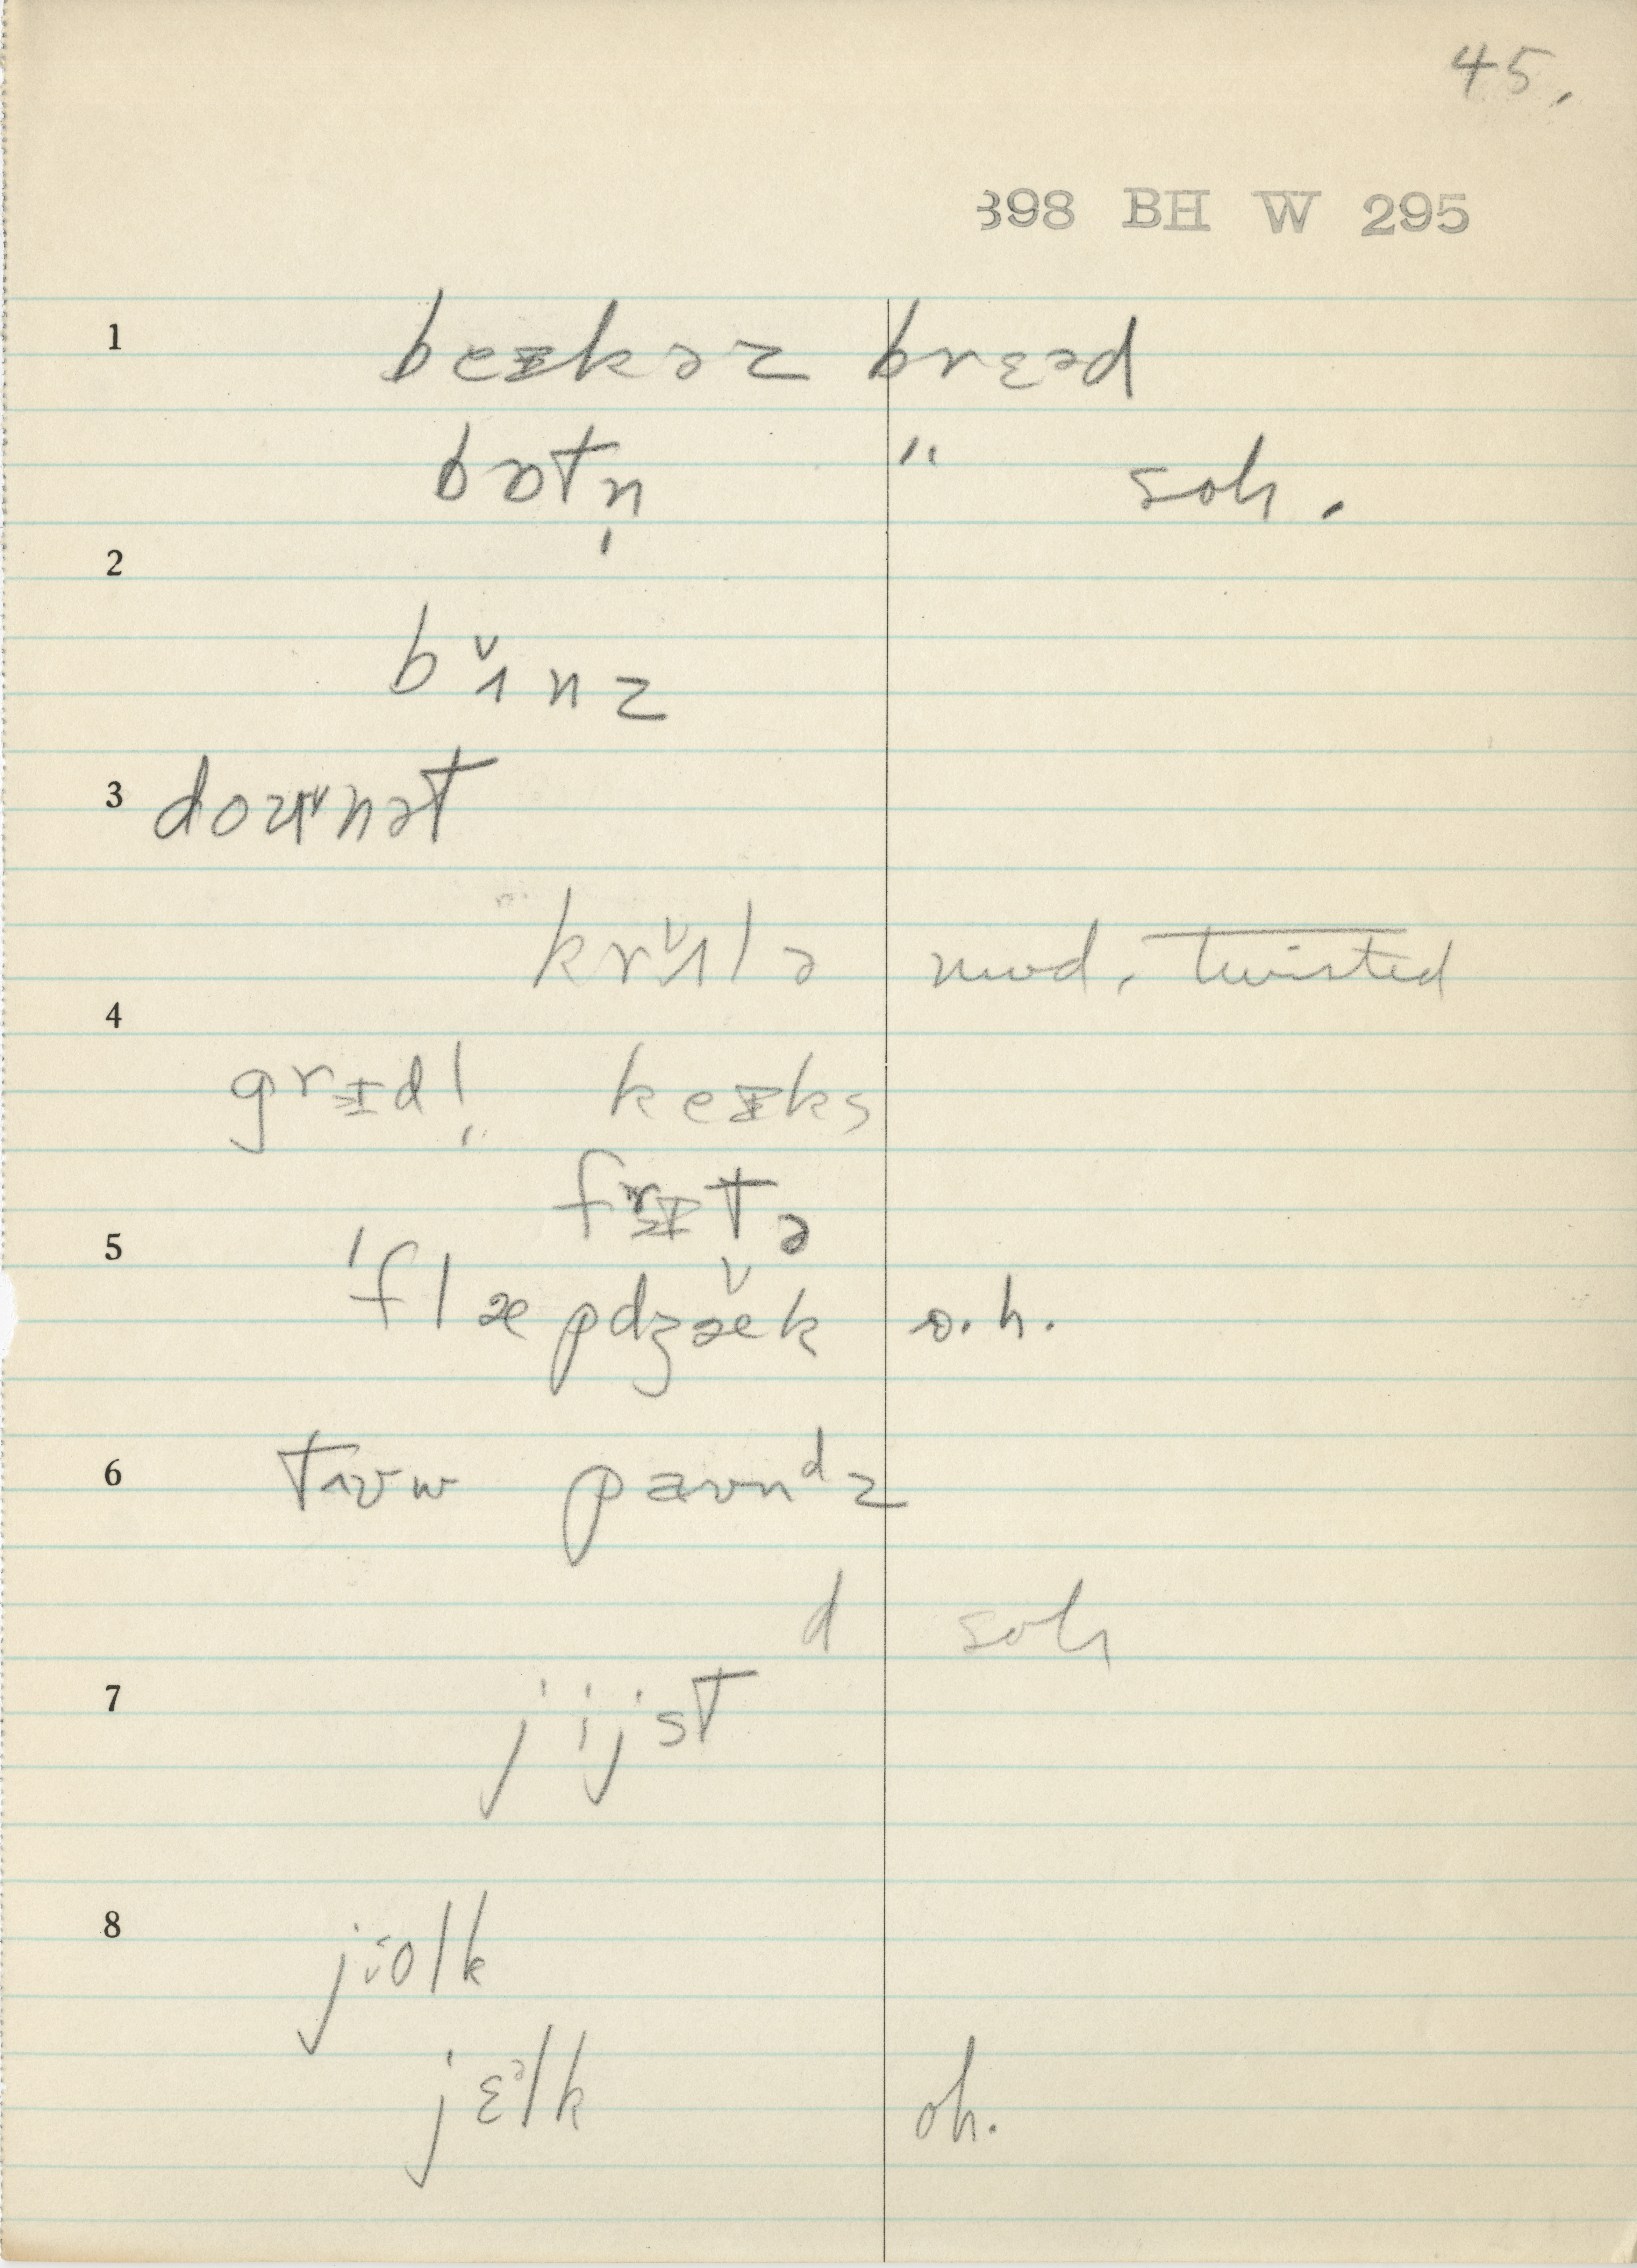 45.
398 BH W 295
1 beᵻkəz brɛəd
bɔtn̩ " soh.
2
bʌ̌nz
3 doʊˇnət
krʌ̌lə mod. twisted
4
grɪdl̩ keᵻks
frɪtə
5
ˈflæpdʒæ̌k o.h.
6 tɪʊw paʊnᵈz
d soh
7
jijst
8
jiolk
jɛᵊlk oh.